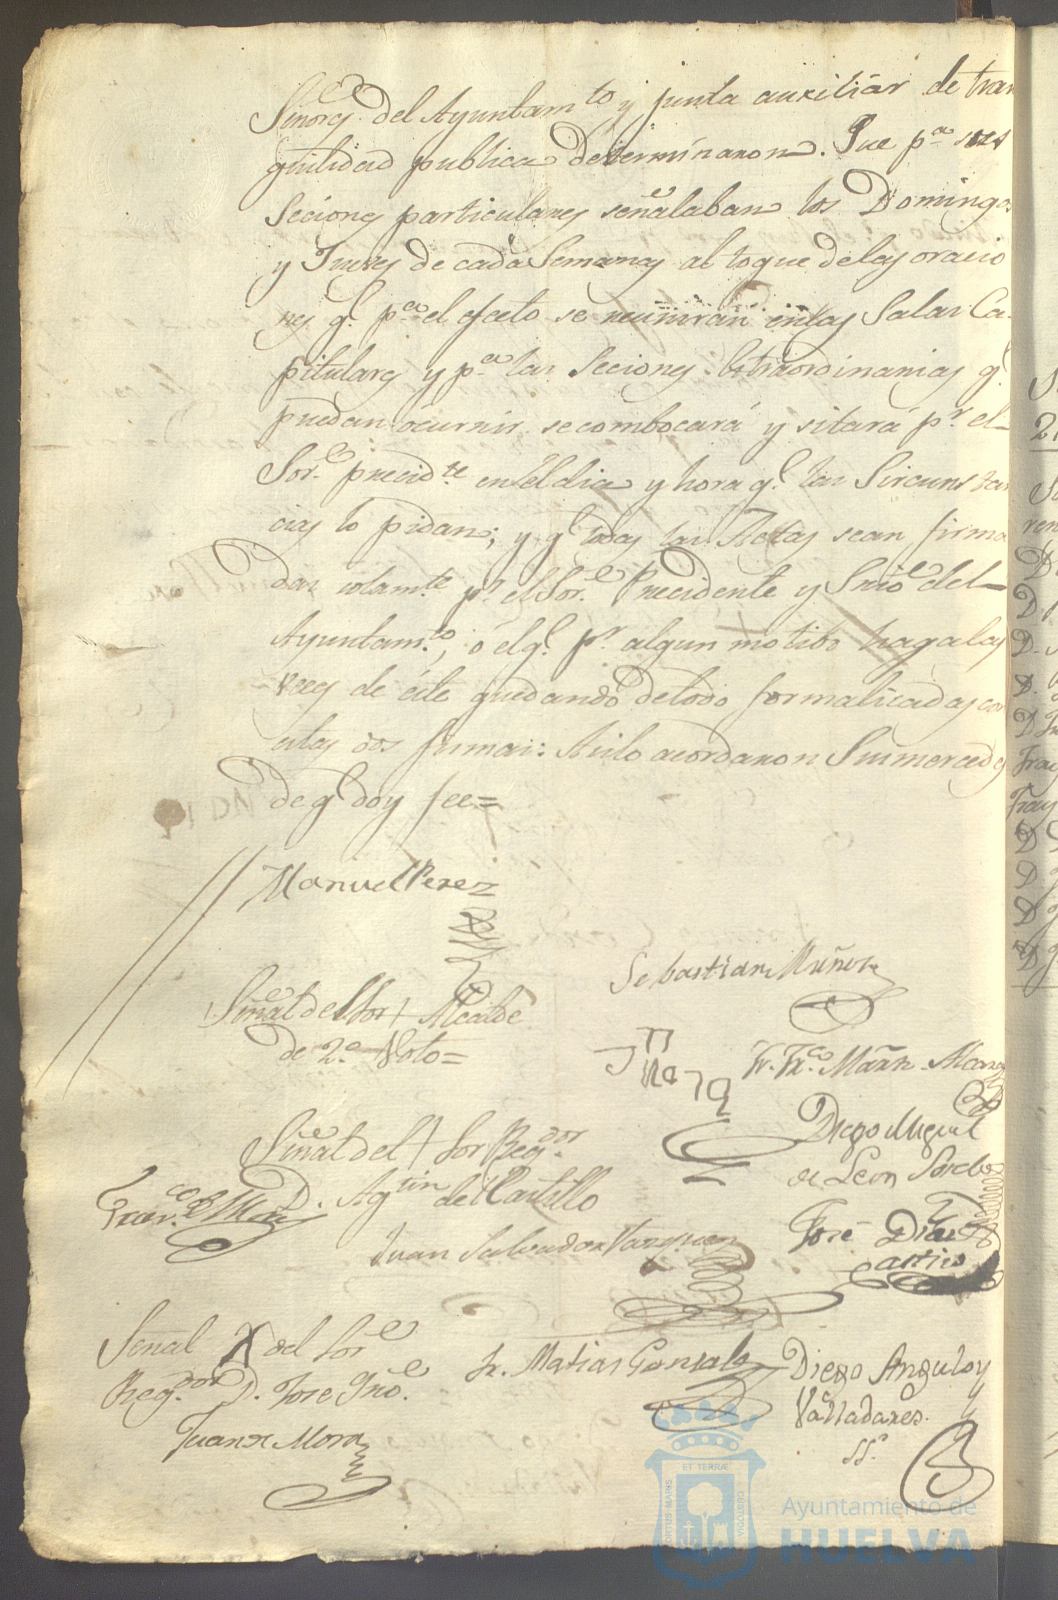 Señores del Ayuntamto y junta auxiliar de tran
quilidad publica determinaron. Que pa sus
Seciones particulares señalaban los Domingos
y Jueves de cada Semanas al toque delas oracio
nes qe pa el efecto se reuniran enlas Salas Ca-
pitulares y pa las Seciones Extraordinarias qe
puedan ócurrir se combocará y sitará pr el
Sor. precidte en el dia y hora qe las Sircunstan
cias lo pidan; y qe todas las Actas sean firma
das solamte pr el Sor. Precidente y Srio del
Ayuntamto, ó el qe pr algun motibo haga las
veces de éste quedando detodo formalicadas con
estas dos firmas: Asilo acordaron Sus mercedes
de qe doy fee=
Manuel Perez
Sebastian Muñoz
Señal del Sor + Alcalde
de 2o. Voto=
Fr. Franco. Marn
Diego Miguel
de Leon
Señal del + Sor Regdor
D. Agtin del Castillo
Juan Salvador
José Diaz
Señal X del Sor
Regdor D. Jose
Fr. Matias Gonzalez
Diego Angulo y
Valladares.
Juan Mora
ss.
ET TERRÆ
PORTUS MARIS
CUSTODIA
Ayuntamiento de
HUELVA
2.
D.
D
D.
D.
D
Fray
Fray
D
D
D
D